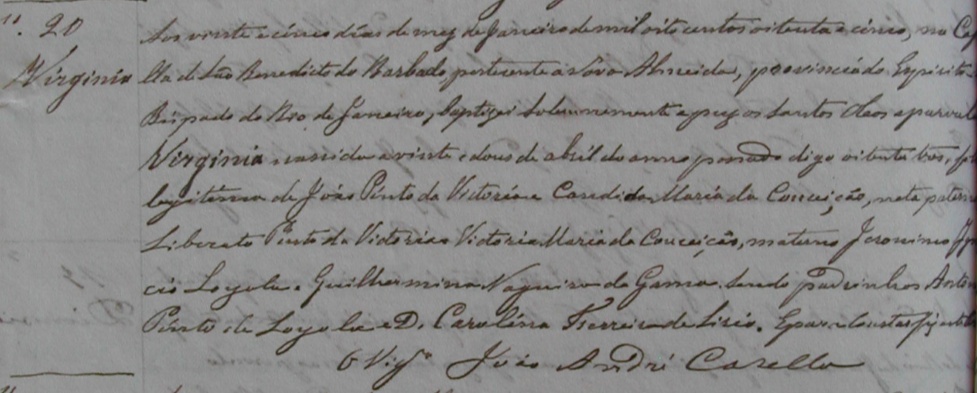 n. 20
Virginia
Aos vinte e cinco dias do mez de Janeiro de mil oito centos oitenta e cinco, na Cap
ella de São Benedicto do Barbado, pertencente a Nova Almeida, provincia do Espirito
Bispado do Rio de Janeiro, baptizei solemnemente e puz os Santos Oleos a parvula
Virginia nascida a vinte e dous de abril do anno passado digo oitenta tres, fi
legitima de João Pinto da Victoria e Candida Maria da Conceição, neta patern
Liberato Pinto da Victoria e Victoria Maria da Conceição, materno Jeronimo Ign
cio Loyola e Guilhermina Nogueira da Gama. Sendo padrinhos Anton
Pinto de Loyola e D. Carolina Ferreira de . E para constar fiz este
O Vigº João André Casella